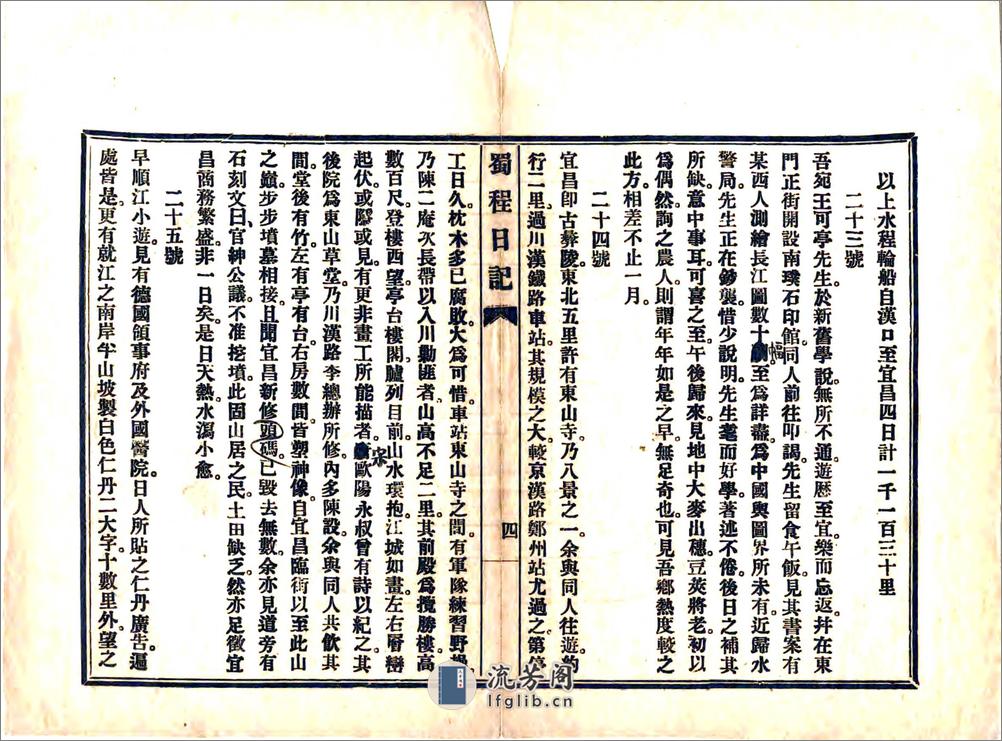 以上水程輪船自漢口至宜昌四日計一千一百三十里
二十三號
吾宛王可亭先生於新舊學說無所不通遊歷至宜樂而忘返幷在東
門正街開設南璞石印館同人前往叩謁先生留食午飯見其書案有
某西人測繪長江圖數十幅至爲詳盡爲中國輿圖界所未有近歸水
警局先生正在鈔襲惜少說明先生耄而好學著述不倦後日之補其
所缺意中事耳可喜之至午後歸來見地中大麥出穗豆莢將老初以
爲偶然詢之農人則謂年年如是之早無足奇也可見吾鄉熱度較之
此方相差不止一月
二十四號
宜昌即古彝陵東北五里許有東山寺乃八景之一余與同人往遊約
行二里過川漢鐵路車站其規模之大較京漢路鄭州站尤過之第停
蜀程日記
四
工日久枕木多已腐敗大爲可惜車站東山寺之間有軍隊練習野操
乃陳二庵次長帶以入川勦匪者山高不足二里其前殿爲攬勝樓高
數百尺登樓西望亭台樓閣臚列目前山水環抱江城如畫左右層巒
起伏或隱或見有更非畫工所能描者宋歐陽永叔曾有詩以紀之其
後院爲東山草堂乃川漢路李總辦所修內多陳設余與同人共飲其
間堂後有竹左有亭有台右房數間皆塑神像自宜昌臨街以至此山
之巔步步墳墓相接且聞宜昌新修頭碼已毀去無數余亦見道旁有
石刻文曰官紳公議不准挖墳此固山居之民土田缺乏然亦足徵宜
昌商務繁盛非一日矣是日天熱水瀉小愈
二十五號
早順江小遊見有德國領事府及外國醫院日人所貼之仁丹廣告遍
處皆是更有就江之南岸半山坡製白色仁丹二大字十數里外望之
流芳阁
lfglib.cn